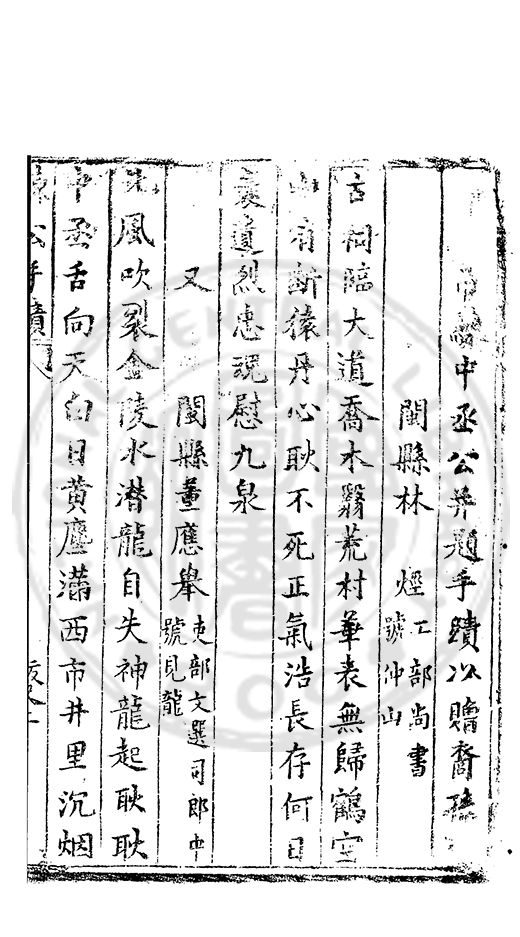 中丞公并題手蹟以贈裔孫
閩縣林 烴工部尚書號仲山
古祠臨大道喬木翳荒村華表無歸鶴空
山有斷猿丹心耿不死正氣浩長存何日
襃遺烈忠魂慰九泉
又 閩縣董應舉吏部文選司郎中號見龍
北風吹裂金陵水潛龍自失神龍起耿耿
中丞舌向天白日黄塵滿西市井里沉烟
公手蹟